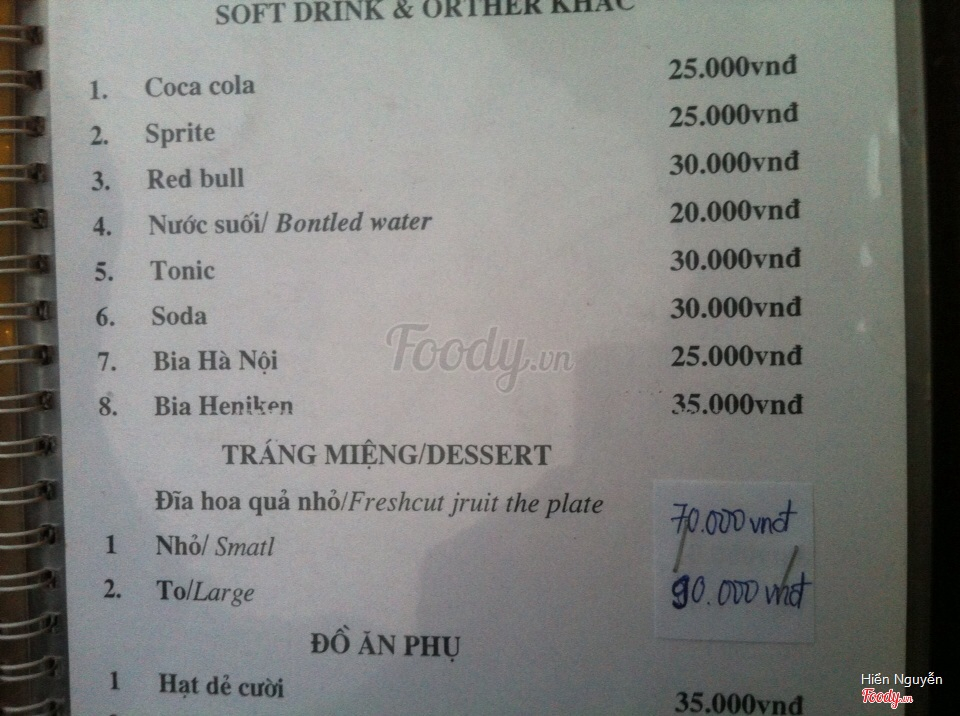 SOFT DRINK & ORTHER KHÁC
1. Coca cola 25.000vnđ
2. Sprite 25.000vnđ
3. Red bull 30.000vnđ
4. Nước suối/ Bontled water 20.000vnđ
5. Tonic 30.000vnđ
6. Soda 30.000vnđ
7. Bia Hà Nội 25.000vnđ
8. Bia Heniken 35.000vnđ
Foody.vn
TRÁNG MIỆNG/DESSERT
Đĩa hoa quả nhỏ/Freshcut jruit the plate
1 Nhỏ/ Smatl 70.000 vnđ
2. To/Large 90.000 vnđ
ĐỒ ĂN PHỤ
1 Hạt dẻ cười 35.000vnđ
Hiền Nguyễn
Foody.vn